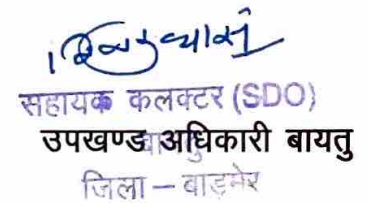 सहायक कलक्टर (SDO)
उपखण्ड अधिकारी बायतु
जिला – बाड़मेर